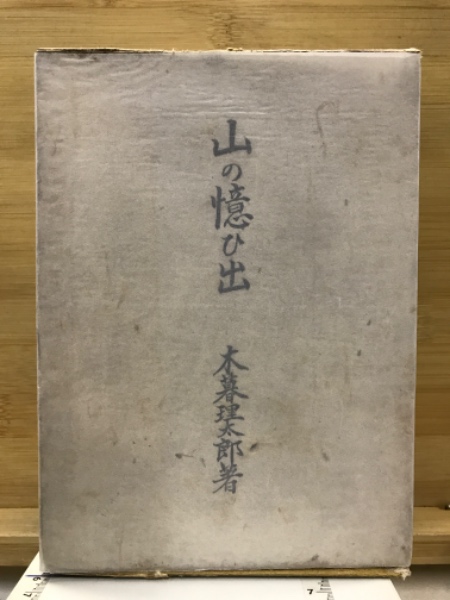 山の憶ひ出
木暮理太郎著
7